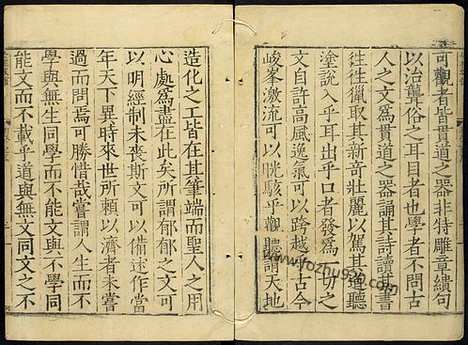 可觀者皆貫道之器非特雕章繢句
以治聾俗之耳目者也學者不問古
人之文爲貫道之器誦其詩讀其書
徃徃獵取其新竒壯麗以駕其道聽
塗説入乎耳出乎口者發爲一切之
文自許高風逸氣可以跨越古今
峻峯激流可以恍駭乎觀聽謂天地
造化之工皆在其筆端而聖人之用
心處爲盡在此矣所謂郁郁之文可
以明經制未喪斯文可以備述作當
年天下異時來世所頼以濟者未嘗
過而問焉可勝惜哉嘗謂人生而不
學與無生同學而不能文與不學同
能文而不載乎道與無文同文之不
www.fozhu920.com